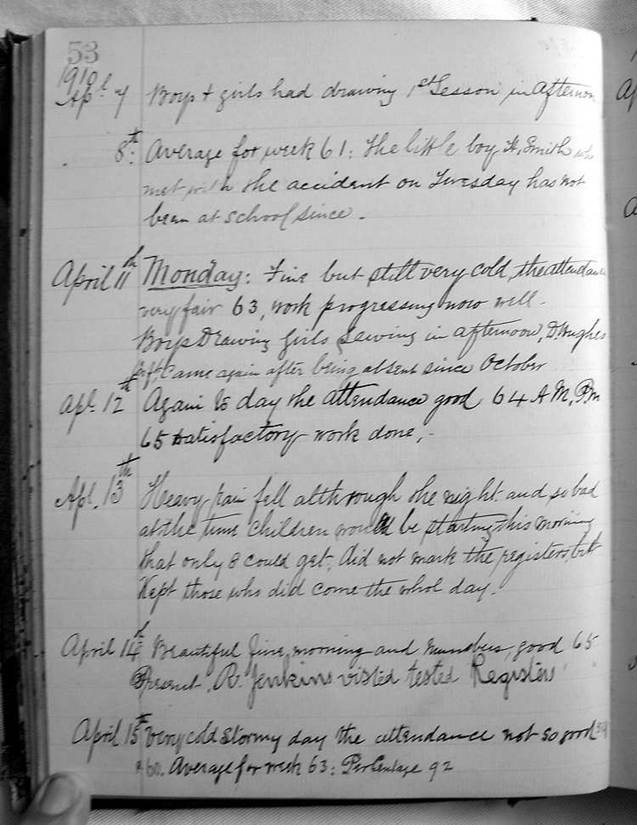 53
1910
Apl 7 Boys + girls had drawing 1st Lesson in Afternoon
8th: Average for week 61: The little boy H. Smith who
met with the accident on Tuesday has not
been at school since.
April 11th Monday: Fine but still very cold, the attendance
very fair 63, work progressing now well.
Boys Drawing girls Sewing in afternoon, D. Hughes
came again after being absent since October
Apl. 12th Again to day the attendance good 64 A M, Pm
65 satisfactory work done,-
Apl. 13th Heavy rain fell although the night and so bad
at the time children would be starting this morning
that only 8 could get. did not mark the registers, but
Kept those who did come the whol day.
April 14th Beautiful fine, morning and numbers, good 65
Present. R. Jenkins visited tested Registers
April 15th Very cold stormy day the attendance not so good 59
60. Average for week 63: Percentage 92